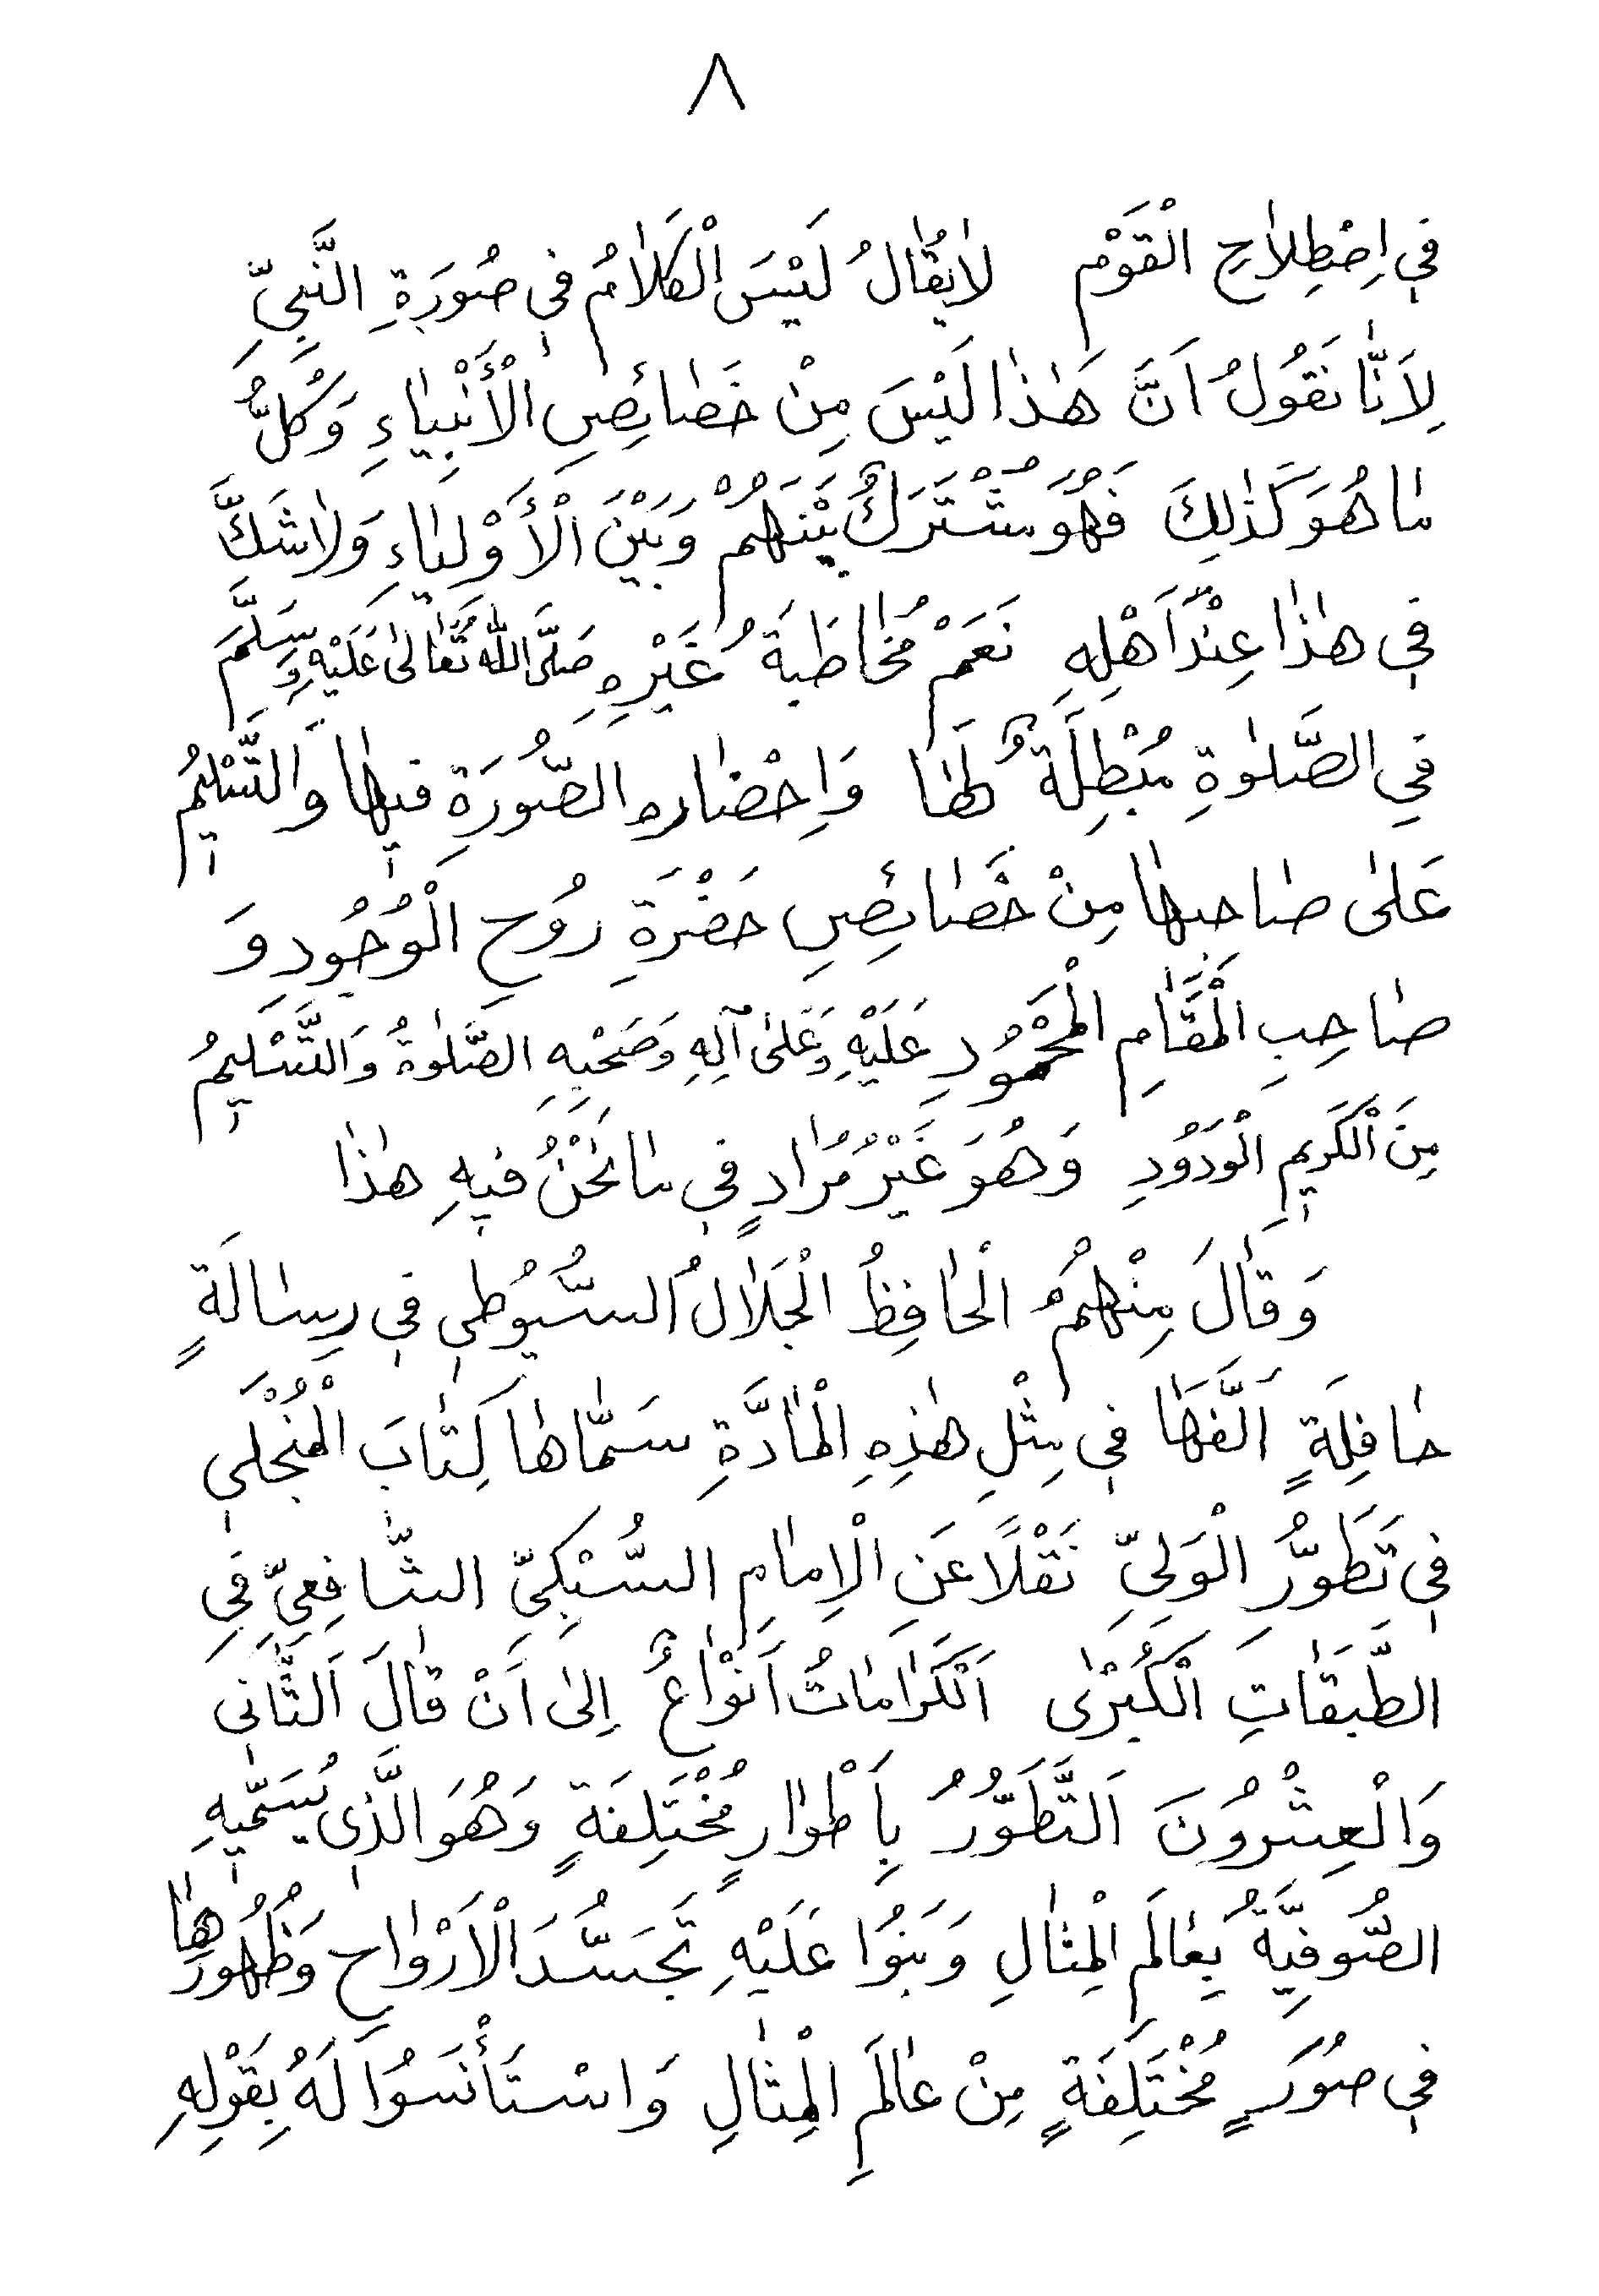 ٨
فِي اِصْطِلاٰحِ الْقَوْمِ لاٰيُقٰالُ لَيْسَ الْكَلاٰمُ فِي صُورَةِ النَّبِيِّ
لِاَنّٰا نَقُولُ اَنَّ هَذٰا لَيْسَ مِنْ خَصٰائِصِ الْأَنْبِيٰاءِ وَكُلُّ
مٰا هُوَ كَذٰلِكَ فَهُوَ مُشْتَرَكٌ بَيْنَهُمْ وَبَيْنَ الْأَوْلِيٰاءِ وَلاٰشَكَّ
فِي هٰذٰا عِنْدَ اَهْلِهِ نَعَمْ مُخٰاطَبَةُ غَيْرِهِ صَلَّى اللّٰهُ تَعٰالىٰ عَلَيْهِ وَسَلَّمَ
فِي الصَّلوٰةِ مُبْطِلَةٌ لَهٰا وَاِحْضٰارُهُ الصُّورَةِ فِيهٰا وَالتَّسْلِيمُ
عَلىٰ صٰاحِبِهٰا مِنْ خَصٰائِصِ حَضْرَةِ رُوحِ الْوُجُودِ وَ
صٰاحِبِ الْمَقٰامِ الْمَحْمُودِ عَلَيْهِ وَعَلىٰ آلِهِ وَصَحْبِهِ الصَّلوٰةُ وَالتَّسْلِيمُ
مِنَ الْكَرِيمِ الْوَدُودِ وَهُوَ غَيْرُ مُرٰادٍ فِي مٰا نَحْنُ فِيهِ هٰذٰا
وَقٰالَ مِنْهُمُ الْحٰافِظُ الْجَلاٰلُ السُّيُوطِي فِي رِسٰالَةٍ
حٰافِلَةٍ اَلَّفَهٰا فِي مِثْلِ هٰذِهِ الْمٰادَّةِ سَمّٰاهٰا كِتٰابَ الْمُنْجَلِي
فِي تَطَوُّرِ الْوَلِيِّ نَقْلًا عَنِ الْاِمٰامِ السُّبْكِيِّ الشّٰافِعِيِّ فِي
الطَّبَقٰاتِ الْكُبْرٰى اَلْكَرٰامٰاتُ اَنْوٰاعٌ اِلىٰ اَنْ قٰالَ اَلثّٰانِي
وَالْعِشْرُونَ اَلتَّطَوُّرُ بِاَطْوٰارٍ مُخْتَلِفَةٍ وَهُوَ الَّذِي يُسَمِّيهِ
الصُّوفِيَّةُ بِعٰالَمِ الْمِثٰالِ وَبَنَوُا عَلَيْهِ تَجَسُّدَ الْاَرْوٰاحِ وَظُهُورَهٰا
فِي صُوَرٍ مُخْتَلِفَةٍ مِنْ عٰالَمِ الْمِثٰالِ وَاسْتَأْنَسُوا لَهُ بِقَوْلِهِ